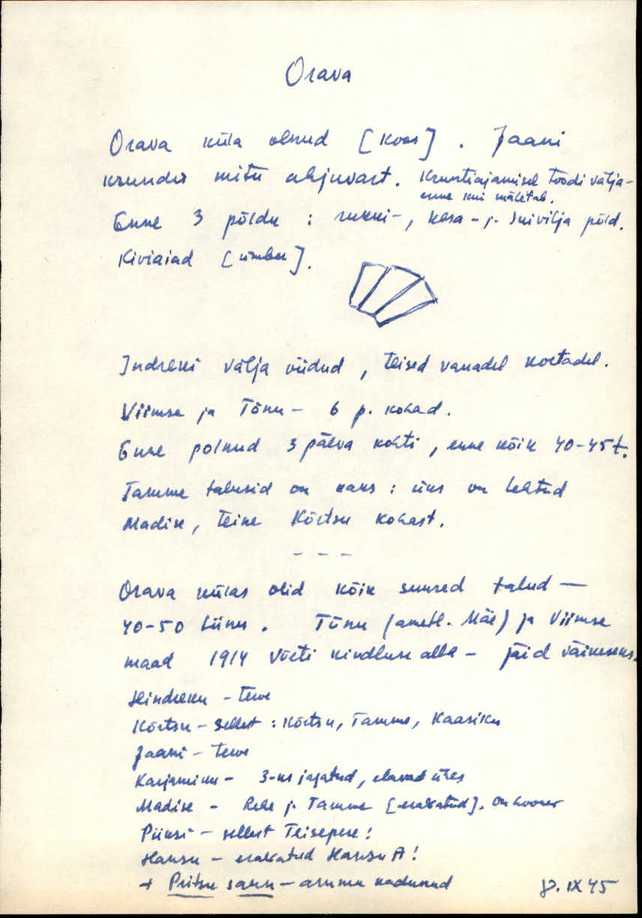 Orava
Orava küla olnud [koos]. Jaani
krundis mitu ahjuvart. Kruntiajamisel toodi välja-
enne kui mäletab.
Enne 3 põldu: rukki-, kesa- j. suivilja põld.
Kiviaiad [ümber].
Indreku välja viidud, teised vanadel kohtadel.
Viimse ja Tõnu - 6 p. kohad.
Enne polnud 3 päeva kohti, enne kõik 40-45 t.
Tamme talusid on kaks: üks on lahtud
Madise, teine Kõrtsu kohast.
- - -
Orava külas olid kõik suured talud -
40-50 tiinu. Tõnu (ametl. Mäe) ja Viimse
maad 1914 võeti kindluse alla - jäid väikeseks.
Hindreku - terve
Kõrtsu - sellest: Kõrtsu, Tamme, Kaasiku
Jaani - terve
Karjamiku - 3-ks jagatud, elavad üres
Madise - Rehe j. Tamme [eraldatud].
Piiusi - sellest Teisepere!
Hansu - eraldatud Hansu A!
+ Pritsu sauna - ammu kadunud
IX 45